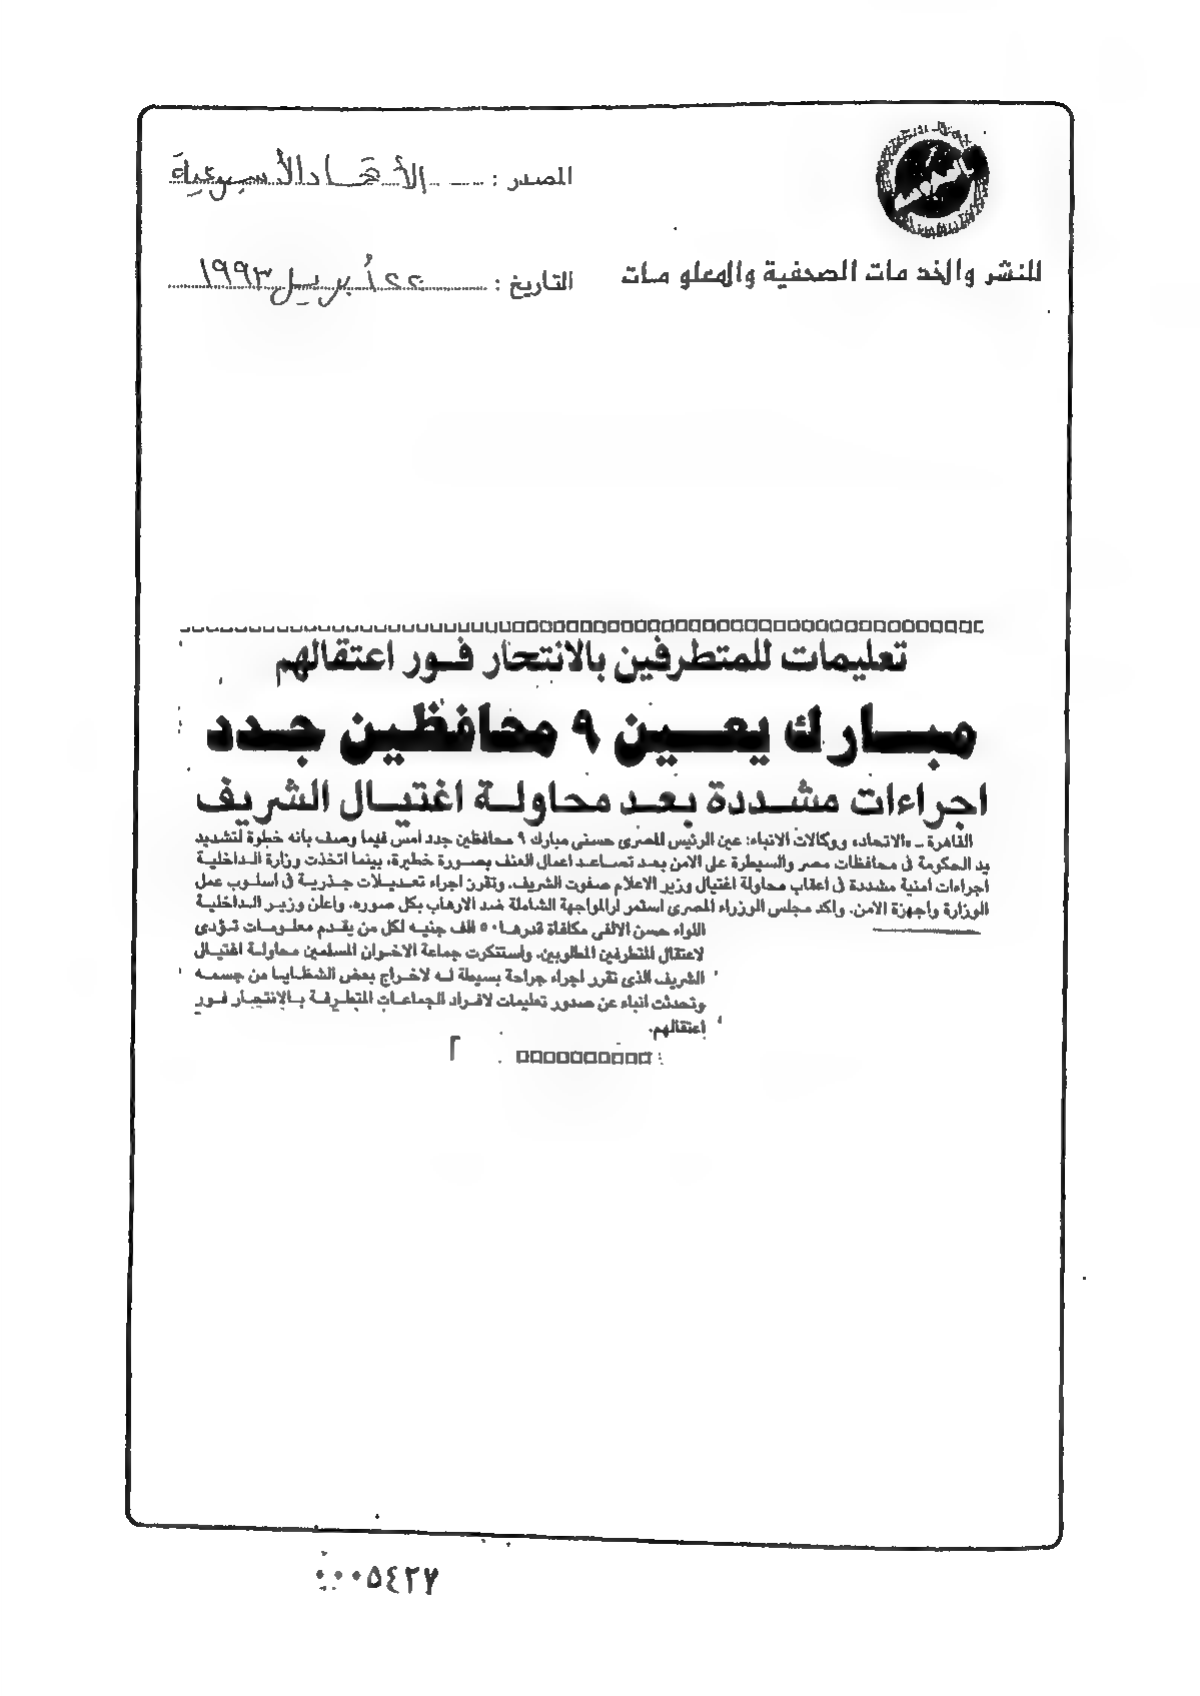 المصدر : الاتحاد الأسبوعية
للنشر والخدمات الصحفية والمعلومات
التاريخ : ٢٢ أبريل ١٩٩٣
تعليمات للمتطرفين بالانتحار فور اعتقالهم
مبارك يعين ٩ محافظين جدد
اجراءات مشددة بعد محاولة اغتيال الشريف
القاهرة ـ «الاتحاد» ووكالات الانباء: عين الرئيس المصرى حسنى مبارك ٩ محافظين جدد امس فيما وصف بأنه خطوة لتشديد
يد الحكومة فى محافظات مصر والسيطرة على الامن بعد تصاعد اعمال العنف بصورة خطيرة، بينما اتخذت وزارة الداخلية
اجراءات أمنية مشددة فى أعقاب محاولة اغتيال وزير الاعلام صفوت الشريف. وتقرر اجراء تعديلات جذرية فى اسلوب عمل
الوزارة واجهزة الامن. واكد مجلس الوزراء المصرى استمرار المواجهة الشاملة ضد الارهاب بكل صوره، واعلن وزير الداخلية
اللواء حسن الالفى مكافاة قدرها ٥٠ الف جنيه لكل من يقدم معلومات تؤدى
لاعتقال المتطرفين المطلوبين. واستنكرت جماعة الاخوان المسلمين محاولة اغتيال
الشريف الذى تقرر اجراء جراحة بسيطة له لاخراج بعض الشظايا من جسمه
وتحدثت انباء عن صدور تعليمات لافراد الجماعات المتطرفة بالانتحار فور
اعتقالهم.
٢
٠٠٠٥٤٢٧